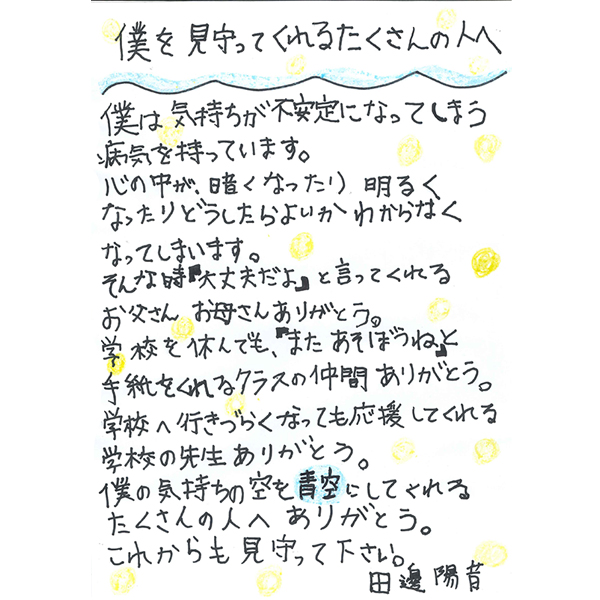 僕を見守ってくれるたくさんの人へ
僕は気持ちが不安定になってしまう
病気を持っています。
心の中が、暗くなったり 明るく
なったりどうしたらよいかわからなく
なってしまいます。
そんな時『大丈夫だよ』と言ってくれる
お父さん お母さんありがとう。
学校を休んでも、『またあそぼうね』と
手紙をくれるクラスの仲間ありがとう。
学校へ行きづらくなっても応援してくれる
学校の先生ありがとう。
僕の気持ちの空を青空にしてくれる
たくさんの人へ ありがとう。
これからも見守って下さい。
田邊陽昔